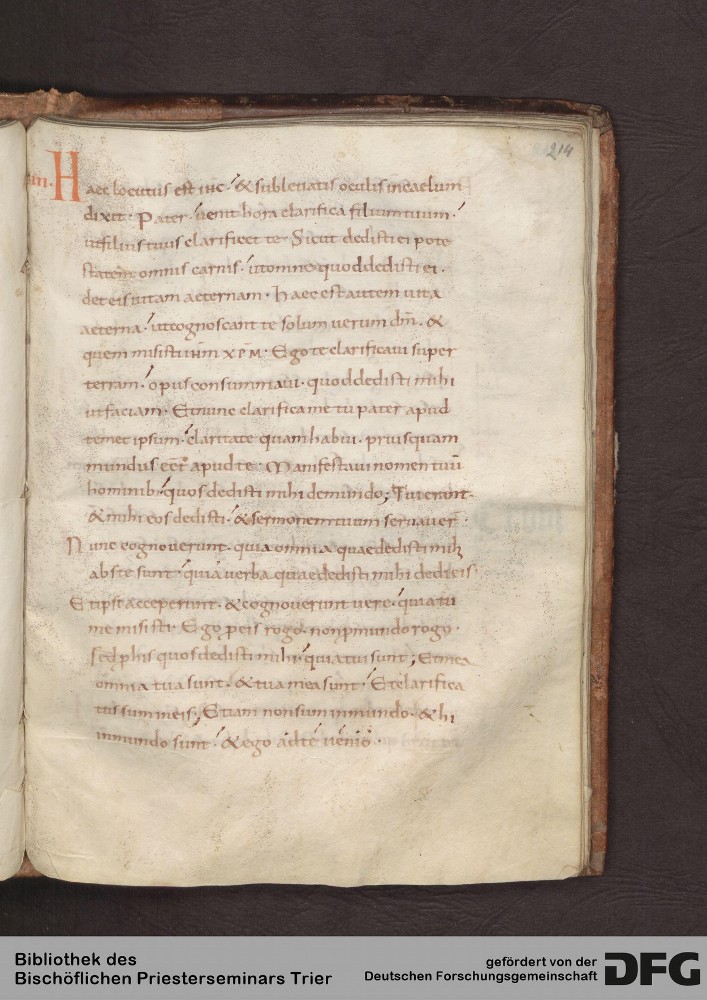 214
Haec locutus est ihc. & subleuatis oculis incaelum
dixit. Pater. uenit hora clarifica filium tuum.
utfilius tuus clarificet te. Sicut dedisti ei pote
statem omnis carnis. ut omne quod dedisti ei.
det eis uitam aeternam. haec est autem uita
aeterna. ut cognoscant te solum uerum dm̅. &
quem misisti ihm̅ xpm̅. Ego te clarificaui super
terram. opus consummaui. quod dedisti mihi
ut faciam. Et nunc clarifica me tu pater apud
temet ipsum. claritate quam habui. priusquam
mundus eet̅ apud te. Manifestaui nomen tuū
hominib; quos dedisti mihi de mundo; Tui erant.
& mihi eos dedisti. & sermonem tuum seruauer̅.
Nunc cognouerunt. quia omnia quae dedisti mihi
abs te sunt. quia uerba quae dedisti mihi dedi eis.
Et ipsi acceperunt. & cognouerunt uere. quia tu
me misisti. Ego p eis rogo. non p mundo rogo.
sed p his quos dedisti mihi. quia tui sunt; Et mea
omnia tua sunt. & tua mea sunt. Et clarifica
tus sum in eis; Et iam non sum in mundo. & hi
in mundo sunt. & ego ad te uenio.
Bibliothek des
Bischöflichen Priesterseminars Trier
gefördert von der
Deutschen Forschungsgemeinschaft
DFG